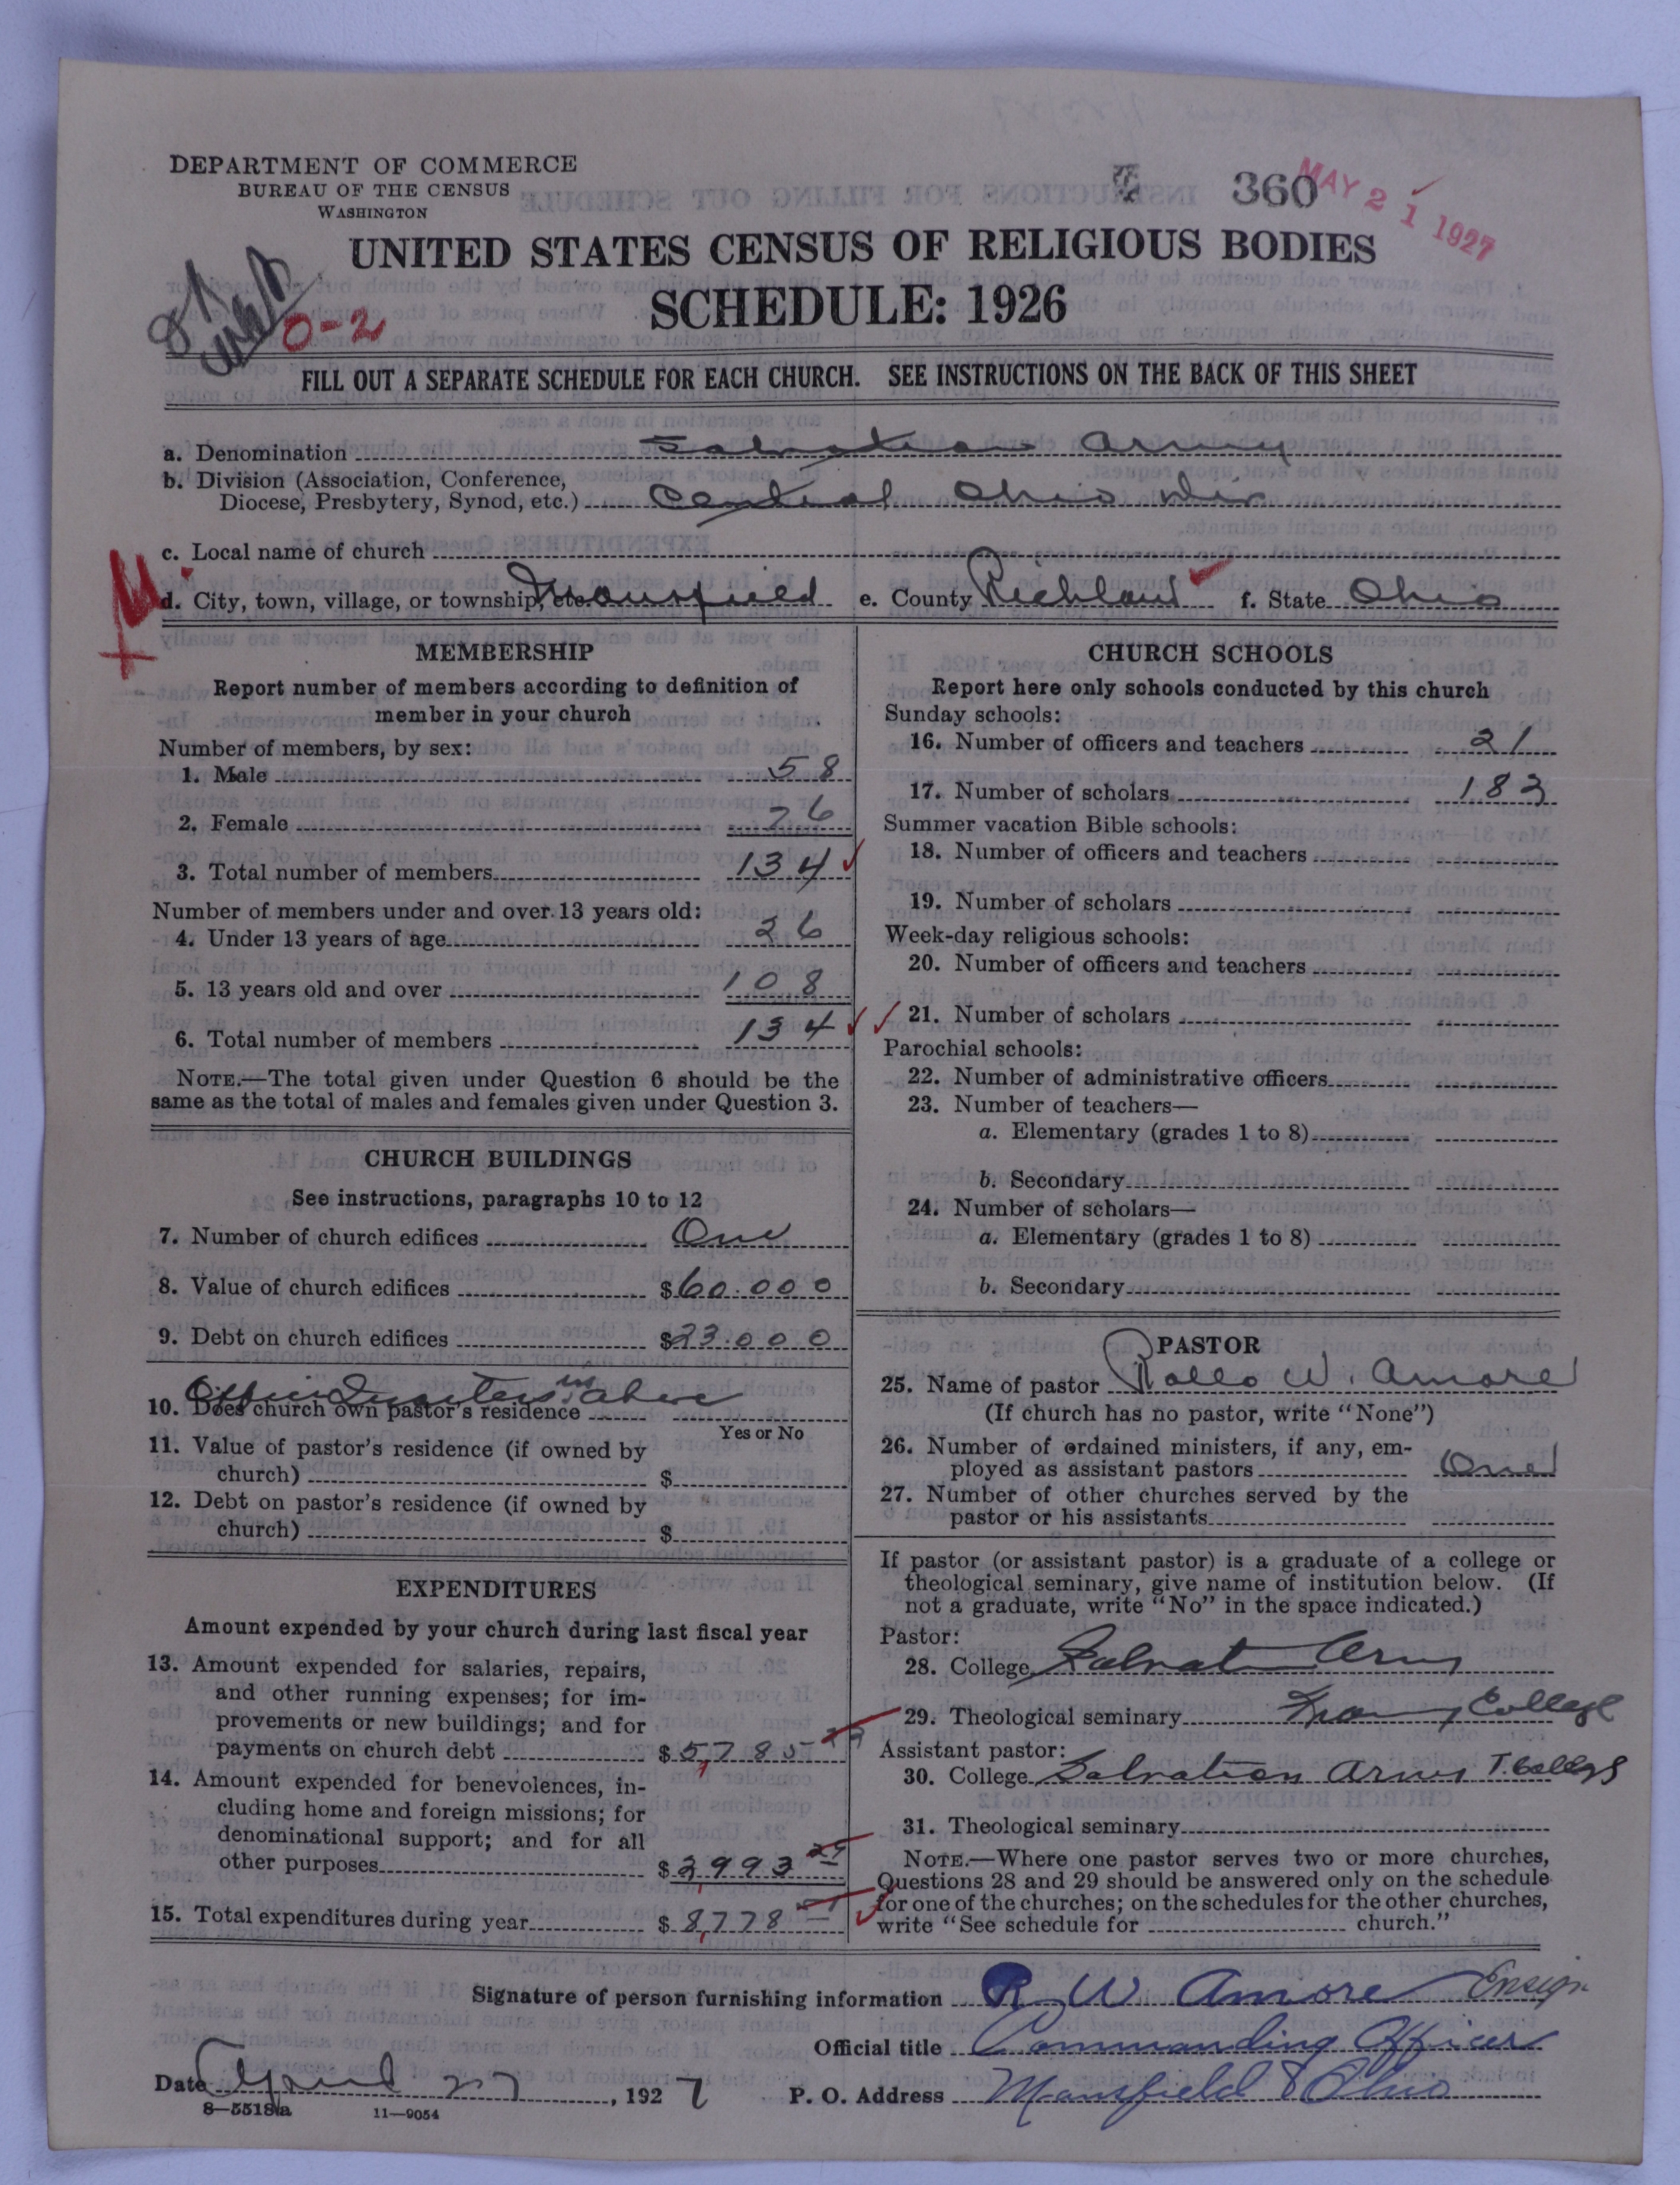 DEPARTMENT OF COMMERCE
BUREAU OF THE CENSUS
WASHINGTON
360
MAY 21 1927
UNITED STATES CENSUS OF RELIGIOUS BODIES
SCHEDULE: 1926
0-2
FILL OUT A SEPARATE SCHEDULE FOR EACH CHURCH. SEE INSTRUCTIONS ON THE BACK OF THIS SHEET
a. Denomination Salvation Army
b. Division (Association, Conference,
Diocese, Presbytery, Synod, etc.) Central Ohio Div
c. Local name of church
M
d. City, town, village, or township, etc. Mansfield e. County Richland f. State Ohio
MEMBERSHIP
Report number of members according to definition of
member in your church
Number of members, by sex:
1. Male 58
2. Female 76
3. Total number of members 134
Number of members under and over 13 years old:
4. Under 13 years of age 26
5. 13 years old and over 108
6. Total number of members 134
NOTE.—The total given under Question 6 should be the
same as the total of males and females given under Question 3.
CHURCH BUILDINGS
See instructions, paragraphs 10 to 12
7. Number of church edifices One
8. Value of church edifices $60.000
9. Debt on church edifices $23.000
Officer Quarters in above
10. Does church own pastor's residence
Yes or No
11. Value of pastor's residence (if owned by
church) $
12. Debt on pastor's residence (if owned by
church) $
EXPENDITURES
Amount expended by your church during last fiscal year
13. Amount expended for salaries, repairs,
and other running expenses; for im-
provements or new buildings; and for
payments on church debt $5,785
14. Amount expended for benevolences, in-
cluding home and foreign missions; for
denominational support; and for all
other purposes $2,993
15. Total expenditures during year $8,778
CHURCH SCHOOLS
Report here only schools conducted by this church
Sunday schools:
16. Number of officers and teachers 21
17. Number of scholars 183
Summer vacation Bible schools:
18. Number of officers and teachers
19. Number of scholars
Week-day religious schools:
20. Number of officers and teachers
21. Number of scholars
Parochial schools:
22. Number of administrative officers
23. Number of teachers—
a. Elementary (grades 1 to 8)
b. Secondary
24. Number of scholars—
a. Elementary (grades 1 to 8)
b. Secondary
PASTOR
25. Name of pastor Rollo W. Amore
(If church has no pastor, write "None")
26. Number of ordained ministers, if any, em-
ployed as assistant pastors One
27. Number of other churches served by the
pastor or his assistants
If pastor (or assistant pastor) is a graduate of a college or
theological seminary, give name of institution below. (If
not a graduate, write "No" in the space indicated.)
Pastor:
28. College Salvat Army
29. Theological seminary Trang College
Assistant pastor:
30. College Salvation Army T. College
31. Theological seminary
NOTE.—Where one pastor serves two or more churches,
Questions 28 and 29 should be answered only on the schedule
for one of the churches; on the schedules for the other churches,
write "See schedule for church."
Signature of person furnishing information R W Amore Ensign
Official title Commanding Officer
Date April 27, 1927 P. O. Address Mansfield Ohio
8—5518a 11—9054